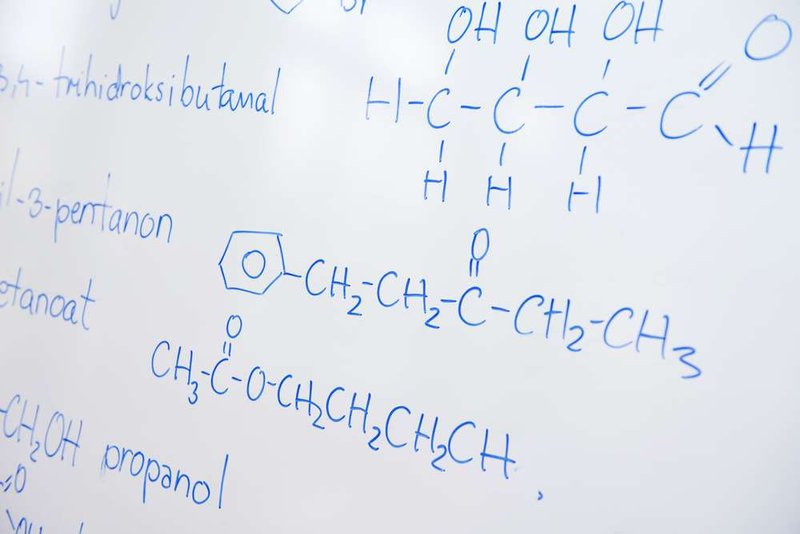 OH OH OH
3,4-trihidroksibutanal
H-C-C-C-C
O
H
H H H
il-3-pentanon
O
CH2-CH2-C-CH2-CH3
etanoat
O
CH3-C-O-CH2CH2CH2CH
-CH2OH propanol
O